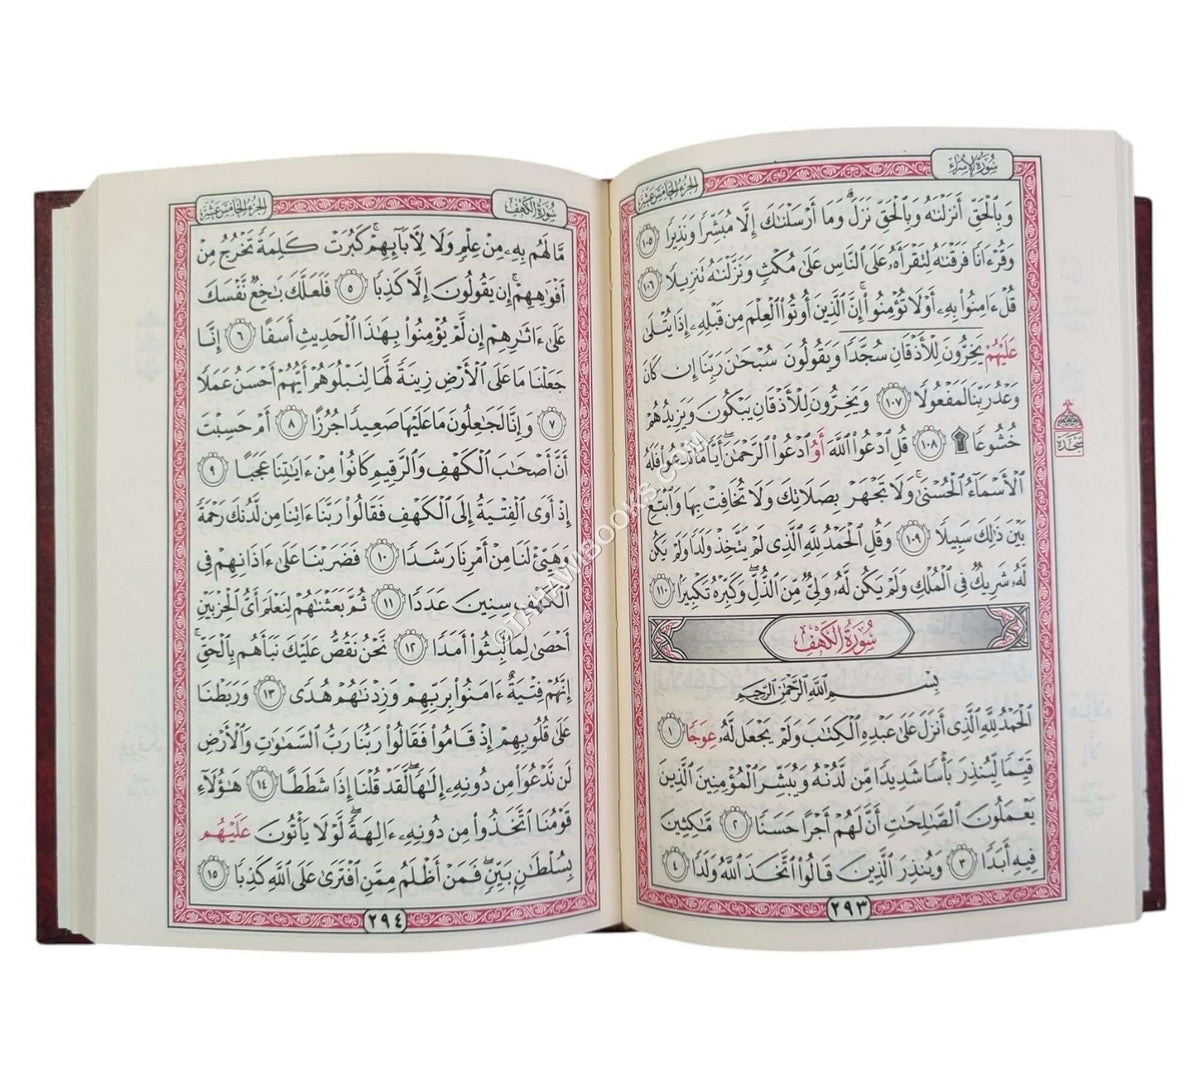 سُورَةُ الإِسۡرَاءِ
الجُزۡءُ الخَامِسَ عَشَرَ
وَبِٱلۡحَقِّ أَنزَلۡنَٰهُ وَبِٱلۡحَقِّ نَزَلَۗ وَمَآ أَرۡسَلۡنَٰكَ إِلَّا مُبَشِّرٗا وَنَذِيرٗا ١٠٥
وَقُرۡءَانٗا فَرَقۡنَٰهُ لِتَقۡرَأَهُۥ عَلَى ٱلنَّاسِ عَلَىٰ مُكۡثٖ وَنَزَّلۡنَٰهُ تَنزِيلٗا ١٠٦
قُلۡ ءَامِنُواْ بِهِۦٓ أَوۡ لَا تُؤۡمِنُوٓاْۚ إِنَّ ٱلَّذِينَ أُوتُواْ ٱلۡعِلۡمَ مِن قَبۡلِهِۦٓ إِذَا يُتۡلَىٰ
عَلَيۡهُمۡ يَخِرُّونَۤ لِلۡأَذۡقَانِ سُجَّدٗا وَيَقُولُونَ سُبۡحَٰنَ رَبِّنَآ إِن كَانَ
وَعۡدُ رَبِّنَا لَمَفۡعُولٗا ١٠٧ وَيَخِرُّونَ لِلۡأَذۡقَانِ يَبۡكُونَ وَيَزِيدُهُمۡ
خُشُوعٗا۩ ١٠٨ قُلِ ٱدۡعُواْ ٱللَّهَ أَوُ ٱدۡعُواْ ٱلرَّحۡمَٰنَۖ أَيّٗا مَّا تَدۡعُواْ فَلَهُ
ٱلۡأَسۡمَآءُ ٱلۡحُسۡنَىٰۚ وَلَا تَجۡهَرۡ بِصَلَاتِكَ وَلَا تُخَافِتۡ بِهَا وَٱبۡتَغِ
بَيۡنَ ذَٰلِكَ سَبِيلٗا ١٠٩ وَقُلِ ٱلۡحَمۡدُ لِلَّهِ ٱلَّذِي لَمۡ يَتَّخِذۡ وَلَدٗا وَلَمۡ يَكُن
لَّهُۥ شَرِيكٞ فِي ٱلۡمُلۡكِ وَلَمۡ يَكُن لَّهُۥ وَلِيّٞ مِّنَ ٱلذُّلِّۖ وَكَبِّرۡهُ تَكۡبِيرَۢا ١١٠
سُورَةُ الكَهۡفِ
بِسۡمِ ٱللَّهِ ٱلرَّحۡمَٰنِ ٱلرَّحِيمِ
ٱلۡحَمۡدُ لِلَّهِ ٱلَّذِيٓ أَنزَلَ عَلَىٰ عَبۡدِهِ ٱلۡكِتَٰبَ وَلَمۡ يَجۡعَل لَّهُۥ عِوَجٗا ١
قَيِّمٗا لِّيُنذِرَ بَأۡسٗا شَدِيدٗا مِّن لَّدُنۡهُ وَيُبَشِّرَ ٱلۡمُؤۡمِنِينَ ٱلَّذِينَ
يَعۡمَلُونَ ٱلصَّٰلِحَٰتِ أَنَّ لَهُمۡ أَجۡرًا حَسَنٗا ٢ مَّٰكِثِينَ
فِيهِ أَبَدٗا ٣ وَيُنذِرَ ٱلَّذِينَ قَالُواْ ٱتَّخَذَ ٱللَّهُ وَلَدٗا ٤
٢٩٣
سَجۡدَة
سُورَةُ الكَهۡفِ
الجُزۡءُ الخَامِسَ عَشَرَ
مَّا لَهُم بِهِۦ مِنۡ عِلۡمٖ وَلَا لِأٓبَآئِهِمۡۚ كَبُرَتۡ كَلِمَةٗ تَخۡرُجُ مِنۡ
أَفۡوَٰهِهِمۡۚ إِن يَقُولُونَ إِلَّا كَذِبٗا ٥ فَلَعَلَّكَ بَٰخِعٞ نَّفۡسَكَ
عَلَىٰٓ ءَاثَٰرِهِمۡ إِن لَّمۡ يُؤۡمِنُواْ بِهَٰذَا ٱلۡحَدِيثِ أَسَفًا ٦ إِنَّا
جَعَلۡنَا مَا عَلَى ٱلۡأَرۡضِ زِينَةٗ لَّهَا لِنَبۡلُوَهُمۡ أَيُّهُمۡ أَحۡسَنُ عَمَلٗا
٧ وَإِنَّا لَجَٰعِلُونَ مَا عَلَيۡهَا صَعِيدٗا جُرُزًا ٨ أَمۡ حَسِبۡتَ
أَنَّ أَصۡحَٰبَ ٱلۡكَهۡفِ وَٱلرَّقِيمِ كَانُواْ مِنۡ ءَايَٰتِنَا عَجَبًا ٩
إِذۡ أَوَى ٱلۡفِتۡيَةُ إِلَى ٱلۡكَهۡفِ فَقَالُواْ رَبَّنَآ ءَاتِنَا مِن لَّدُنكَ رَحۡمَةٗ
وَهَيِّئۡ لَنَا مِنۡ أَمۡرِنَا رَشَدٗا ١٠ فَضَرَبۡنَا عَلَىٰٓ ءَاذَانِهِمۡ فِي
ٱلۡكَهۡفِ سِنِينَ عَدَدٗا ١١ ثُمَّ بَعَثۡنَٰهُمۡ لِنَعۡلَمَ أَيُّ ٱلۡحِزۡبَيۡنِ
أَحۡصَىٰ لِمَا لَبِثُوٓاْ أَمَدٗا ١٢ نَّحۡنُ نَقُصُّ عَلَيۡكَ نَبَأَهُم بِٱلۡحَقِّۚ
إِنَّهُمۡ فِتۡيَةٌ ءَامَنُواْ بِرَبِّهِمۡ وَزِدۡنَٰهُمۡ هُدٗى ١٣ وَرَبَطۡنَا
عَلَىٰ قُلُوبِهِمۡ إِذۡ قَامُواْ فَقَالُواْ رَبُّنَا رَبُّ ٱلسَّمَٰوَٰتِ وَٱلۡأَرۡضِ
لَن نَّدۡعُوَاْ مِن دُونِهِۦٓ إِلَٰهٗاۖ لَّقَدۡ قُلۡنَآ إِذٗا شَطَطًا ١٤ هَٰٓؤُلَآءِ
قَوۡمُنَا ٱتَّخَذُواْ مِن دُونِهِۦٓ ءَالِهَةٗۖ لَّوۡلَا يَأۡتُونَ عَلَيۡهُم
بِسُلۡطَٰنِۭ بَيِّنٖۖ فَمَنۡ أَظۡلَمُ مِمَّنِ ٱفۡتَرَىٰ عَلَى ٱللَّهِ كَذِبٗا ١٥
٢٩٤
©TAHAWIBOOKS.COM